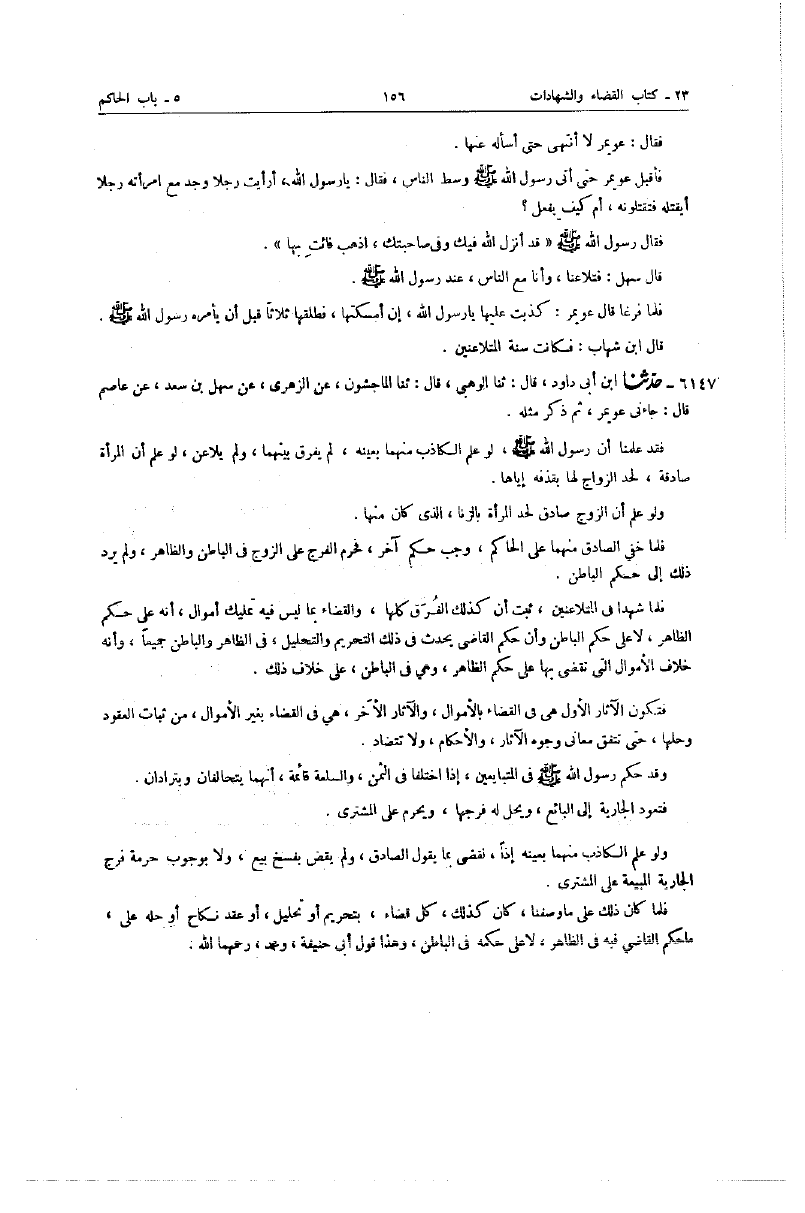 ٢٣ ـ كتاب القضاء والشهادات ١٥٦ ٥ ـ باب الحاكم
فقال : عويمر لا أنتهى حتى أسأله عنها .
فأقبل عويمر حتى أتى رسول الله ﷺ وسط الناس ، فقال : يارسول الله ، أرأيت رجلا وجد مع امرأته رجلا
أيقتله فتقتلونه ، أم كيف يفعل ؟
فقال رسول الله ﷺ « قد أنزل الله فيك وفى صاحبتك ، اذهب فائت بها » .
قال سهل : فتلاعنا ، وأنا مع الناس ، عند رسول الله ﷺ .
فلما فرغا قال عويمر : كذبت عليها يارسول الله ، إن أمسكتها ، فطلقها ثلاثاً قبل أن يأمره رسول الله ﷺ .
قال ابن شهاب : فكانت سنة المتلاعنين .
٦١٤٧ ـ حدثنا ابن أبى داود ، قال : ثنا الوهبى ، قال : ثنا الماجشون ، عن الزهرى ، عن سهل بن سعد ، عن عاصم
قال : جاءنى عويمر ، ثم ذكر مثله .
فقد علمنا أن رسول الله ﷺ ، لو علم الكاذب منهما بعينه ، لم يفرق بينهما ، ولم يلاعن ، لو علم أن المرأة
صادقة ، لحد الزواج لها بقذفه إياها .
ولو علم أن الزوج صادق لحد المرأة بالزنا ، الذى كان منها .
فلما خفى الصادق منهما على الحاكم ، وجب حكم آخر ، فحرم الفرج على الزوج فى الباطن والظاهر ، ولم يرد
ذلك إلى حكم الباطن .
فلما شهدا فى المتلاعنين ، ثبت أن كذلك الفُرَق كلها ، والقضاء بما ليس فيه تمليك أموال ، أنه على حكم
الظاهر ، لا على حكم الباطن وأن حكم القاضى يحدث فى ذلك التحريم والتحليل ، فى الظاهر والباطن جميعاً ، وأنه
خلاف الأموال التى تقضى بها على حكم الظاهر ، وهى فى الباطن ، على خلاف ذلك .
فتكون الآثار الأول هى فى القضاء بالأموال ، والآثار الأخر ، هى فى القضاء بغير الأموال ، من ثبات العقود
وحلها ، حتى تتفق معانى وجوه الآثار ، والأحكام ، ولا تتضاد .
وقد حكم رسول الله ﷺ فى المتبايعين ، إذا اختلفا فى الثمن ، والسلعة قائمة ، أنهما يتحالفان ويترادان .
فتعود الجارية إلى البائع ، ويحل له فرجها ، ويحرم على المشترى .
ولو علم الكاذب منهما بعينه إذاً ، لقضى بما يقول الصادق ، ولم يقض بفسخ بيع ، ولا بوجوب حرمة فرج
الجارية المبيعة على المشترى .
فلما كان ذلك على ماوصفنا ، كان كذلك ، كل قضاء ، بتحريم أو تحليل ، أو عقد نكاح أو حله على ،
ماحكم القاضي فيه فى الظاهر ، لا على حكمه فى الباطن ، وهذا قول أبى حنيفة ، ومحمد ، رحمهما الله .